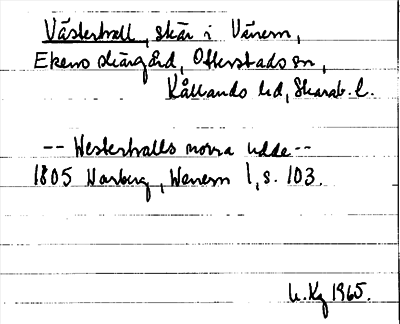 Västerhall, skär i Vänern,
Ekens skärgård, Otterstads sn,
Kållands hd, Skarab. l.
-- Westerhalls norra udde --
1805 Warberg, Wenern 1, s. 103.
1965.